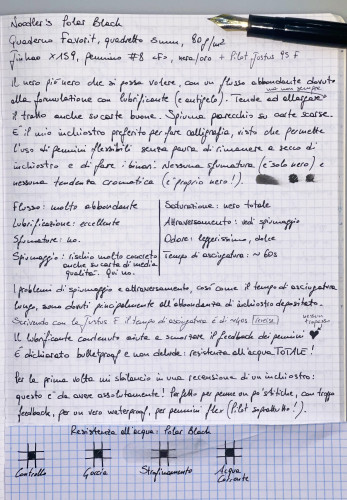 Noodler's Polar Black
Quaderno Favorit, quadretto 5mm, 80 g/m²
Jinhao X159, pennino #8 <F>, nero/oro + Pilot Justus 95 F
Il nero più nero che si possa volere, con un flusso abbondante dovuto
alla formulazione con lubrificante (e antigelo). Tende ad allargare
ma non sempre
il tratto anche su carte buone. Spiuma parecchio su carte scarse.
È il mio inchiostro preferito per fare calligrafia, visto che permette
l'uso di pennini flessibili senza paura di rimanere a secco di
inchiostro e di fare i binari. Nessuna sfumatura (è solo nero) e
nessuna tendenza cromatica (è proprio nero!).
Flusso: molto abbondante
Lubrificazione: eccellente
Sfumature: no.
Spiumaggio: rischio molto concreto
anche su carta di media
qualità. Qui no.
Saturazione: nero totale
Attraversamento: vedi spiumaggio
Odore: leggerissimo, dolce
Tempo di asciugatura: ~ 60s
I problemi di spiumaggio e attraversamento, così come il tempo di asciugatura
lungo, sono dovuti principalmente all'abbondanza di inchiostro depositato.
Scrivendo con la Justus F il tempo di asciugatura è di
Il lubrificante contenuto aiuta a smorzare il feedback dei pennini
È dichiarato bulletproof e non delude: resistenza all'acqua TOTALE!
Per la prima volta mi sbilancio in una recensione di un inchiostro:
questo è da avere assolutamente! Perfetto per penne un po' stitiche, con troppo
feedback, per un vero waterproof, per pennini flex (Pilot soprattutto!).
Resistenza all'acqua: Polar Black
Controllo
Goccia
Strofinamento
Acqua
Corrente